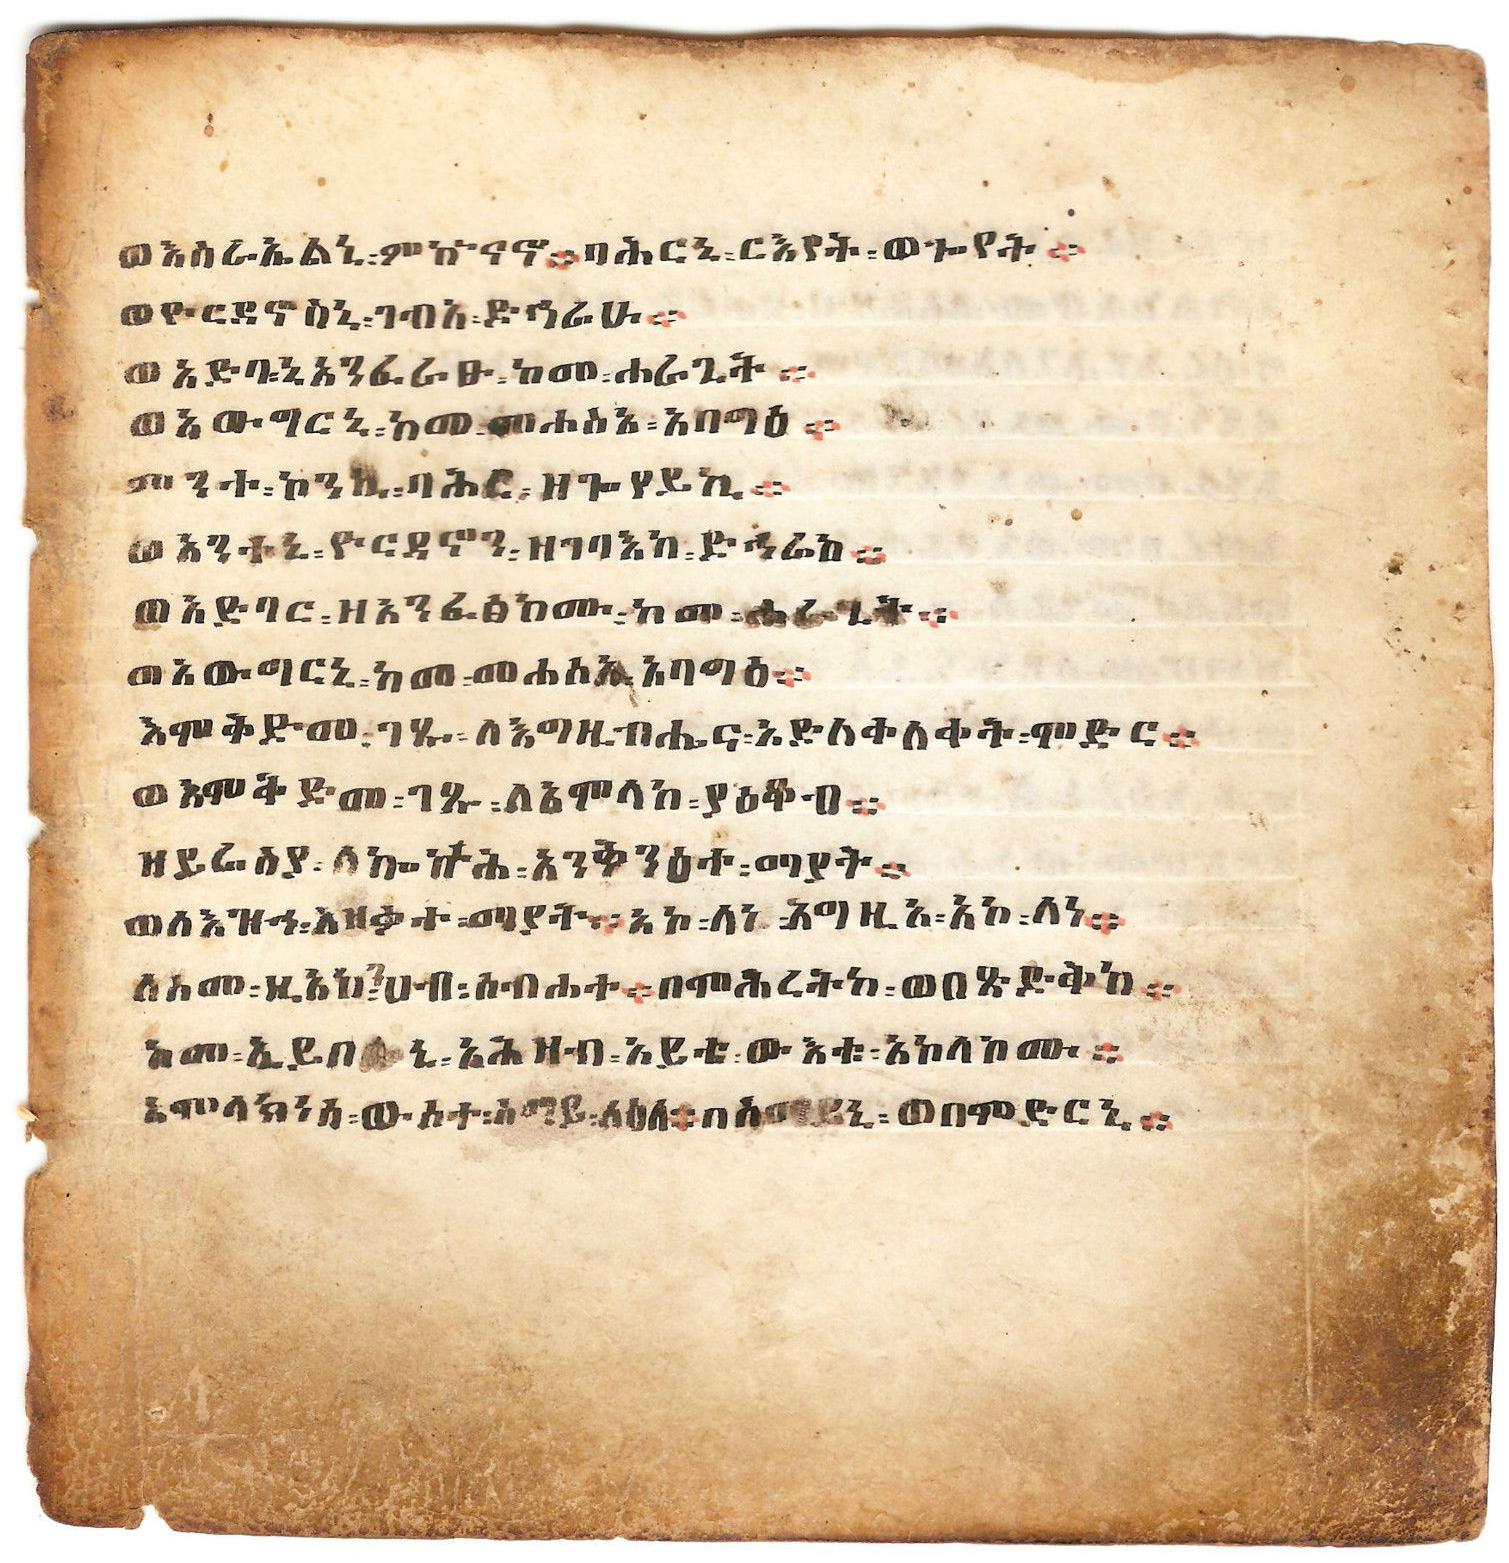 ወእስራኤልኒ፡ምኵናኖ፨ባሕርኒ፡ርእየት፡ወጐየት፨
ወዮርዳኖስኒ፡ገብአ፡ድኅሬሁ፨
ወአድባኒአንፈራፁ፡ከመ፡ሐራጊት፨
ወአውግርኒ፡ከመ፡መሐስአ፡አባግዕ፨
ምንተ፡ኮንኪ፡ባሕር፡ዘጐየይኪ፨
ወአንተኒ፡ዮርዳኖን፡ዘገባእከ፡ድኅሬከ፨
ወአድባር፡ዘአንፈፅከሙ፡ከመ፡ሐራጊት፨
ወአውግርኒ፡ከመ፡መሐስአ፡አባግዕ፨
እምቅድመ፡ገጹ፡ለእግዚብሔር፡አድለቅለቀት፡ምድር፨
ወእምቅድመ፡ገጹ፡ለአምላከ፡ያዕቆብ፨
ዘይሬስያ፡ለኰኵሕ፡አንቅዕተ፡ማያት፨
ወለእዝኅ፡አዝቅተ፡ማያት፨አኮ፡ለነ፡እግዚአ፡አኮ፡ለነ፨
ለስመ፡ዚአከ፡ሀብ፡ስብሐተ፨በምሕረትከ፡ወበጽድቅከ፨
ከመ፡ኢይበ ኒ፡አሕዛብ፡አይቴ፡ውእቱ፡አከላከሙ፨
አምላክነሰ፡ውስተ፡ሰማይ፡ላዕለ፨በሰማይኒ፡ወበምድርኒ፨